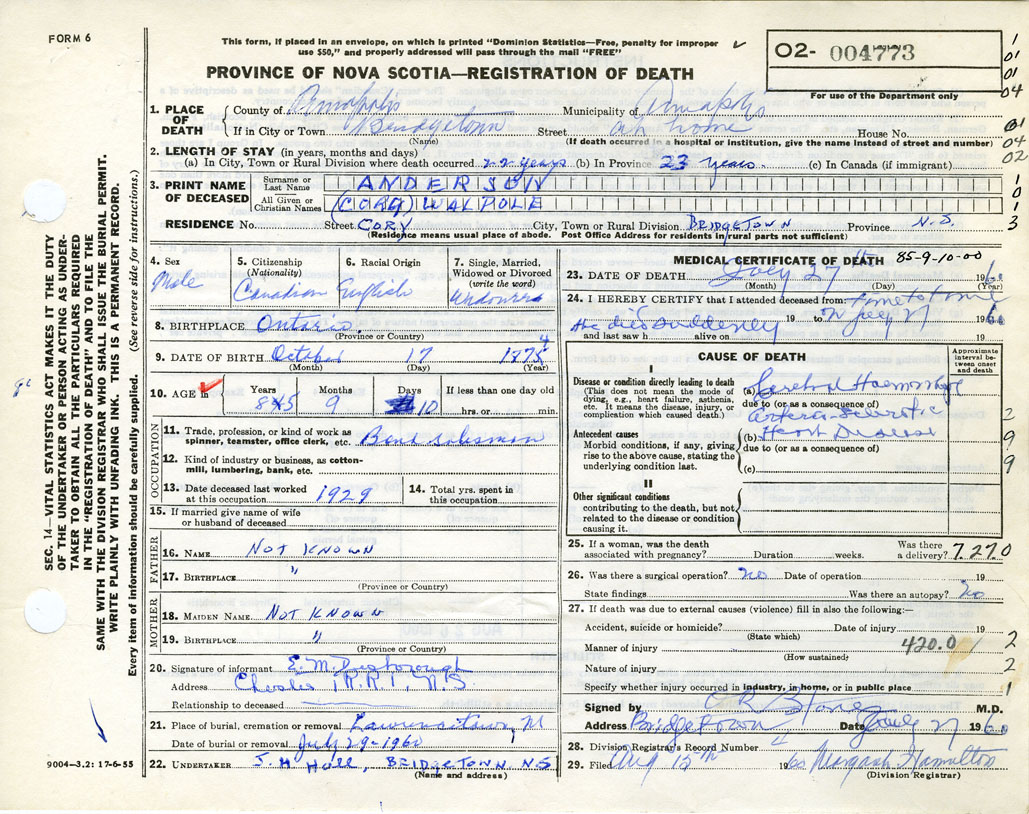 FORM 6
This form, if placed in an envelope, on which is printed "Dominion Statistics—Free, penalty for improper
use $50," and properly addressed will pass through the mail "FREE"
O2- 004773
For use of the Department only
PROVINCE OF NOVA SCOTIA—REGISTRATION OF DEATH
1
01
01
04
01
04
02
1
0
1
3
1. PLACE OF DEATH
County of Annapolis Municipality of Annapolis
If in City or Town Bridgetown Street at home House No.
(Name) (If death occurred in a hospital or institution, give the name instead of street and number)
2. LENGTH OF STAY (in years, months and days)
(a) In City, Town or Rural Division where death occurred 22 years (b) In Province 23 years. (c) In Canada (if immigrant)
3. PRINT NAME OF DECEASED
Surname or Last Name ANDERSON
All Given or Christian Names (CORY) WALPOLE
RESIDENCE No. Street CORY City, Town or Rural Division BRIDGETOWN Province N.S.
(Residence means usual place of abode. Post Office Address for residents in rural parts not sufficient)
4. Sex
Male
5. Citizenship
(Nationality)
Canadian
6. Racial Origin
English
7. Single, Married,
Widowed or Divorced
(write the word)
8. BIRTHPLACE Ontario.
(Province or Country)
9. DATE OF BIRTH October 17 1875 4
(Month) (Day) (Year)
10. AGE in
Years Months Days If less than one day old
85 9 10 hrs. or min.
OCCUPATION
11. Trade, profession, or kind of work as
spinner, teamster, office clerk, etc. Bond salesman
12. Kind of industry or business, as cotton-
mill, lumbering, bank, etc.
13. Date deceased last worked
at this occupation 1929
14. Total yrs. spent in
this occupation
15. If married give name of wife
or husband of deceased
FATHER
16. NAME NOT KNOWN
17. BIRTHPLACE "
(Province or Country)
MOTHER
18. MAIDEN NAME NOT KNOWN
19. BIRTHPLACE "
(Province or Country)
20. Signature of informant E. M. Desborough
Address Chester R.R.1, N.S
Relationship to deceased
21. Place of burial, cremation or removal Lawrencetown, N
Date of burial or removal July 29-1960
22. UNDERTAKER J. H Hall, BRIDGETOWN NS
(Name and address)
MEDICAL CERTIFICATE OF DEATH 85-9-10-00
23. DATE OF DEATH July 27th 1960
(Month) (Day) (Year)
24. I HEREBY CERTIFY that I attended deceased from time to time
he died suddenly 19 to on July 27 1960
and last saw h alive on 19
CAUSE OF DEATH
Approximate
interval between onset
and death
I
Disease or condition directly leading to death
(This does not mean the mode of
dying, e.g., heart failure, asthenia,
etc. It means the disease, injury, or
complication which caused death.)
(a) Cerebral Haemorrhage
due to (or as a consequence of)
Arterio-Sclerotic
(b) Heart Disease
due to (or as a consequence of)
(c)
Antecedent causes
Morbid conditions, if any, giving
rise to the above cause, stating the
underlying condition last.
2
9
9
II
Other significant conditions
contributing to the death, but not
related to the disease or condition
causing it.
25. If a woman, was the death
associated with pregnancy? Duration weeks. Was there
a delivery? 7270
26. Was there a surgical operation? no Date of operation 19
State findings Was there an autopsy? no
27. If death was due to external causes (violence) fill in also the following:—
Accident, suicide or homicide? Date of injury 19
(State which)
Manner of injury 420.0 2
(How sustained)
Nature of injury 2
Specify whether injury occurred in industry, in home, or in public place 1
Signed by M.D.
Address Bridgetown Date July 27 1960
28. Division Registrar's Record Number 4
29. Filed Aug 15th 1960 Margaret Hamilton
(Division Registrar)
SEC. 14—VITAL STATISTICS ACT MAKES IT THE DUTY
OF THE UNDERTAKER OR PERSON ACTING AS UNDER-
TAKER TO OBTAIN ALL THE PARTICULARS REQUIRED
IN THE "REGISTRATION OF DEATH" AND TO FILE THE
SAME WITH THE DIVISION REGISTRAR WHO SHALL ISSUE THE BURIAL PERMIT.
WRITE PLAINLY WITH UNFADING INK. THIS IS A PERMANENT RECORD.
Every item of information should be carefully supplied. (See reverse side for instructions.)
9004-3.2: 17-6-55